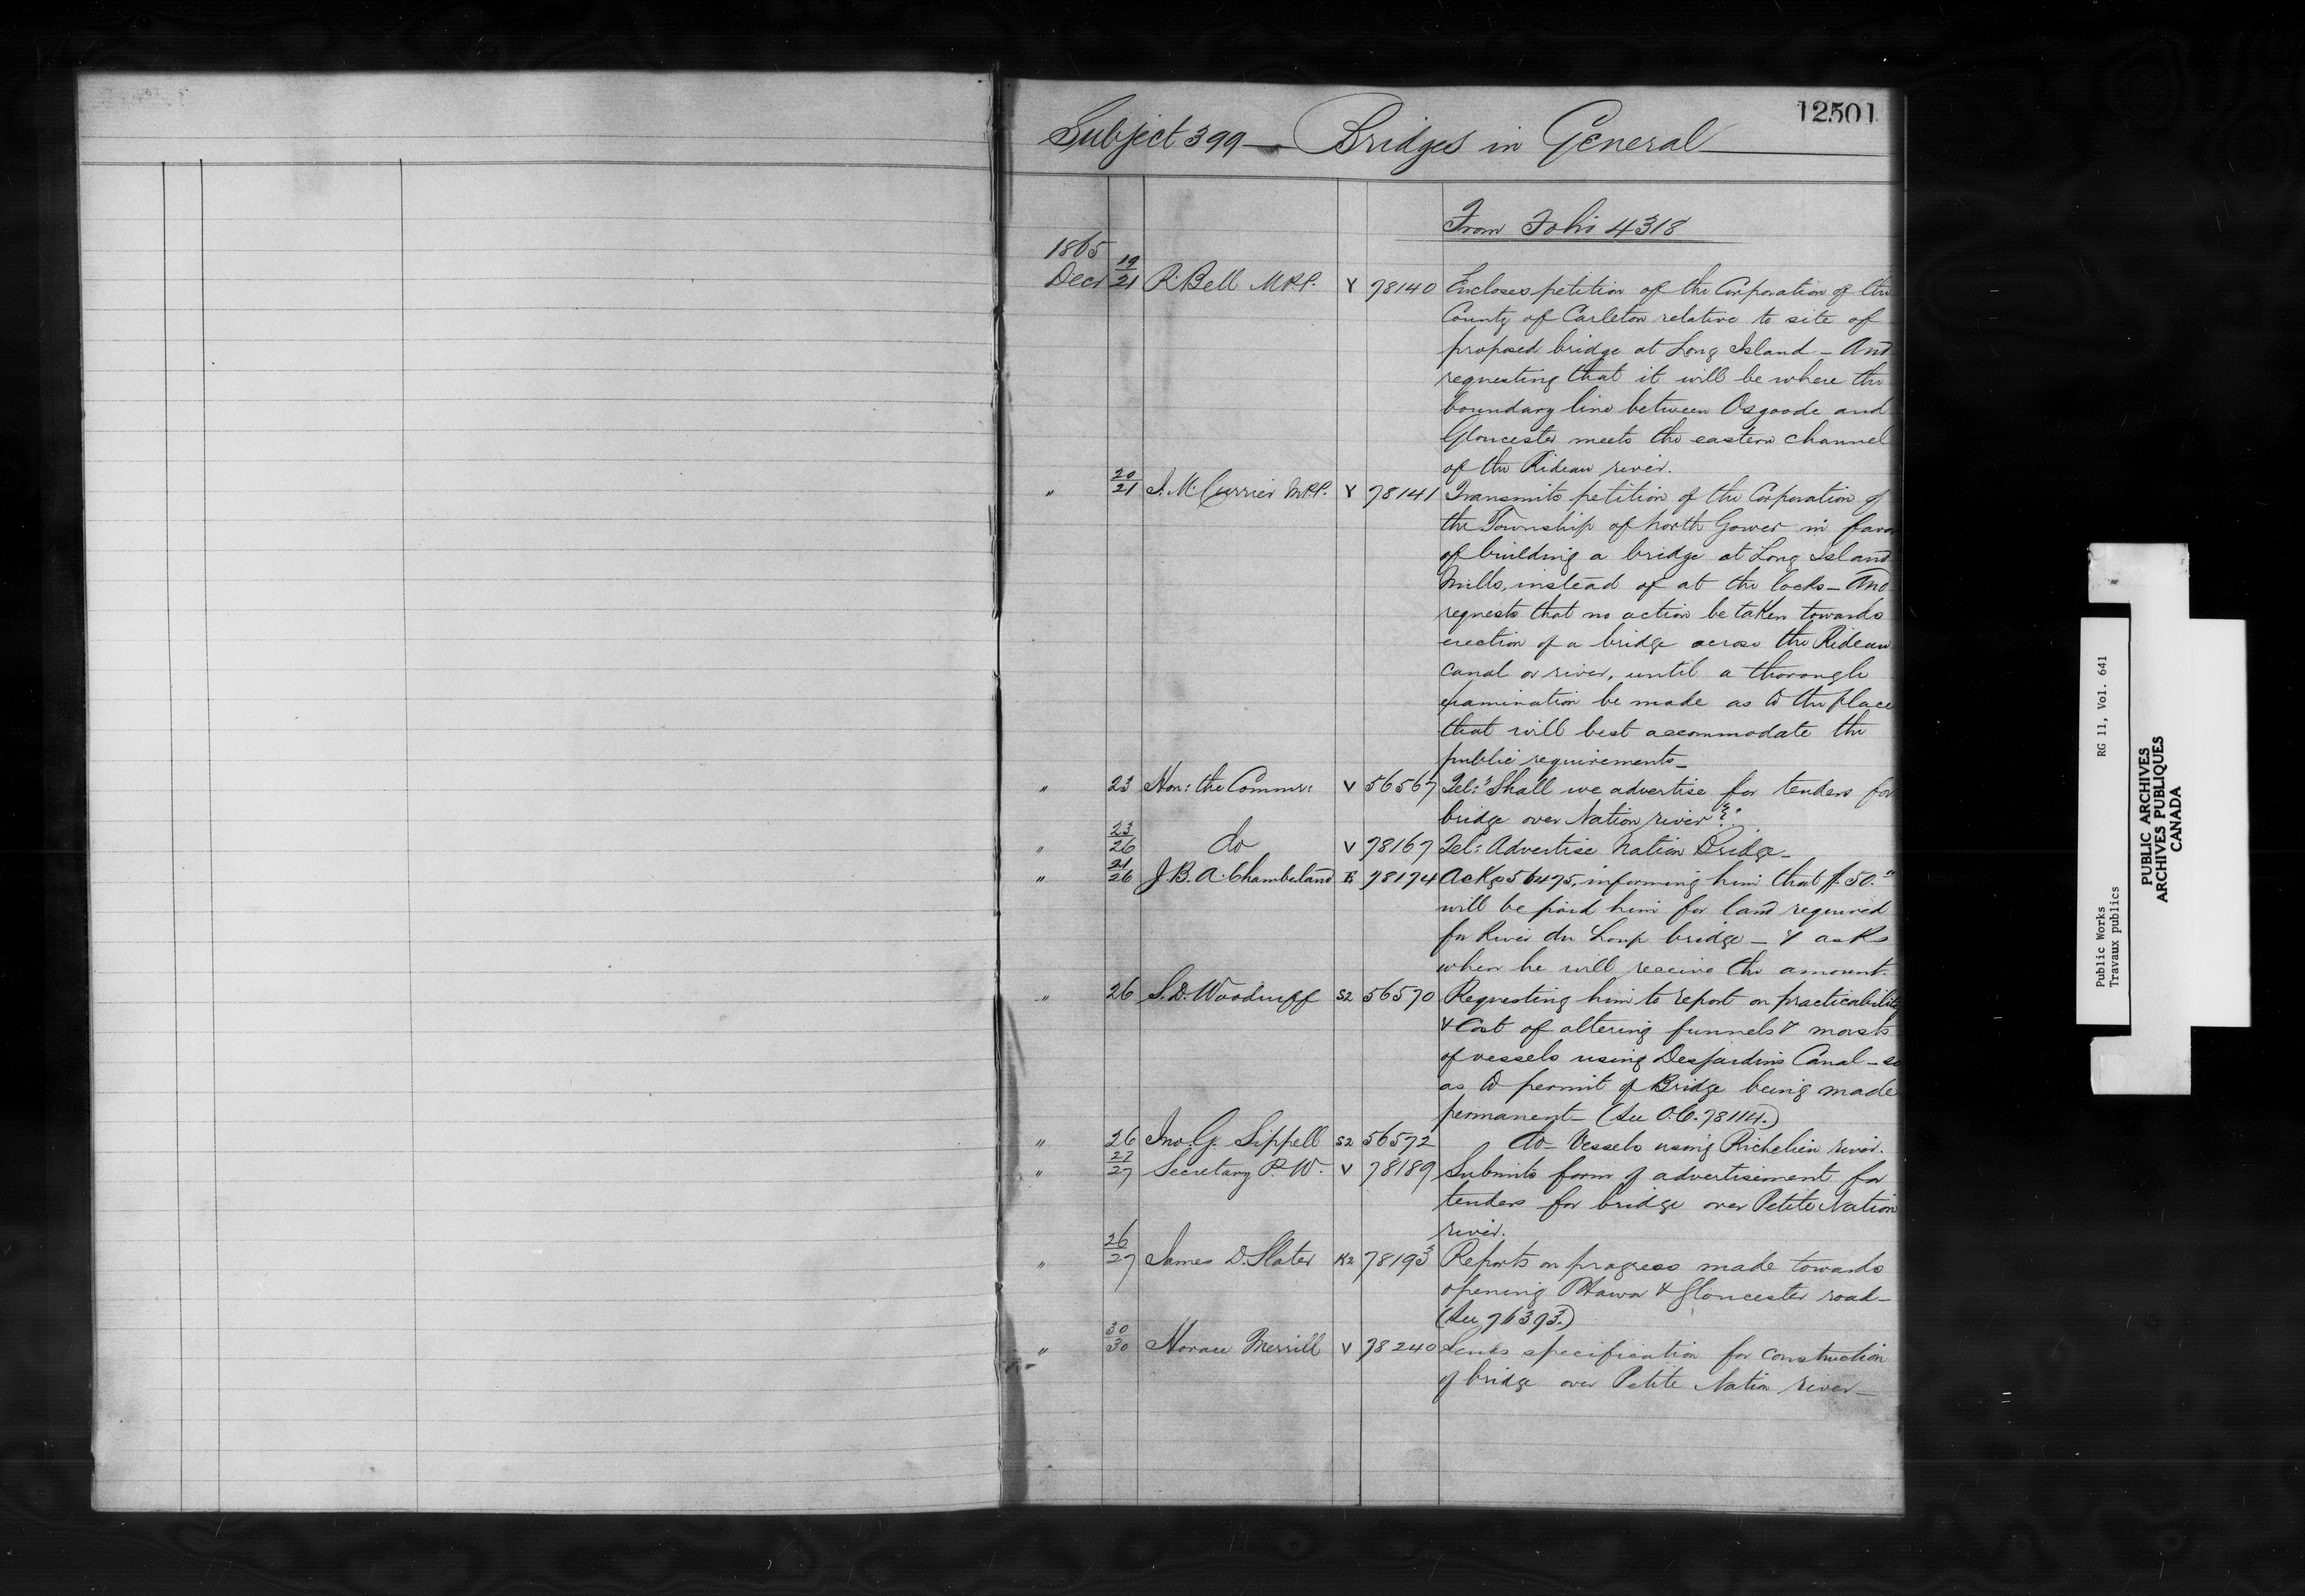 12501
Subject 399 — Bridges in General
From Folio 4318
1865
Decr 19/21 R. Bell M.P.P. Y 78140 Encloses petition of the Corporation of the
County of Carleton relative to site of
proposed bridge at Long Island – And
requesting that it will be where the
boundary line between Osgoode and
Gloucester meets the eastern channel
of the Rideau river.
" 20/21 J. M. Currier M.P.P. Y 78141 Transmits petition of the Corporation of
the Township of North Gower in favor
of building a bridge at Long Island
Mills, instead of at the locks – And
requests that no action be taken towards
erection of a bridge across the Rideau
canal or river, until a thorough
examination be made as to the place
that will best accommodate the
public requirements –
" 23 Hon: the Commr: V 56567 Tel: "Shall we advertise for tenders for
bridge over Nation river?"
" 23/26 do V 78167 Tel: Advertise Nation Bridge –
" 21/26 J. B. A. Chamberland E 78174 Ackgs 56475, informing him that $50.00
will be paid him for land required
for River du Loup bridge – & asks
when he will receive the amount.
" 26 S. D. Woodruff S2 56570 Requesting him to report on practicability
& Cost of altering funnels & masts
of vessels using Desjardins Canal – so
as to permit of Bridge being made
permanent – (See O.C. 78114.)
" 26 Jno. G. Sippell S2 56572 do – Vessels using Richelieu river.
" 27/27 Secretary P. W. V 78189 Submits form of advertisement for
tenders for bridge over Petite Nation
river.
" 26/27 James D. Slater K2 78193 Reports on progress made towards
opening Ottawa & Gloucester road –
(See 76373.)
" 30/30 Horace Merrill V 78240 Sends specification for construction
of bridge over Petite Nation river –
Public Works RG 11, Vol. 641
Travaux publics
PUBLIC ARCHIVES
ARCHIVES PUBLIQUES
CANADA